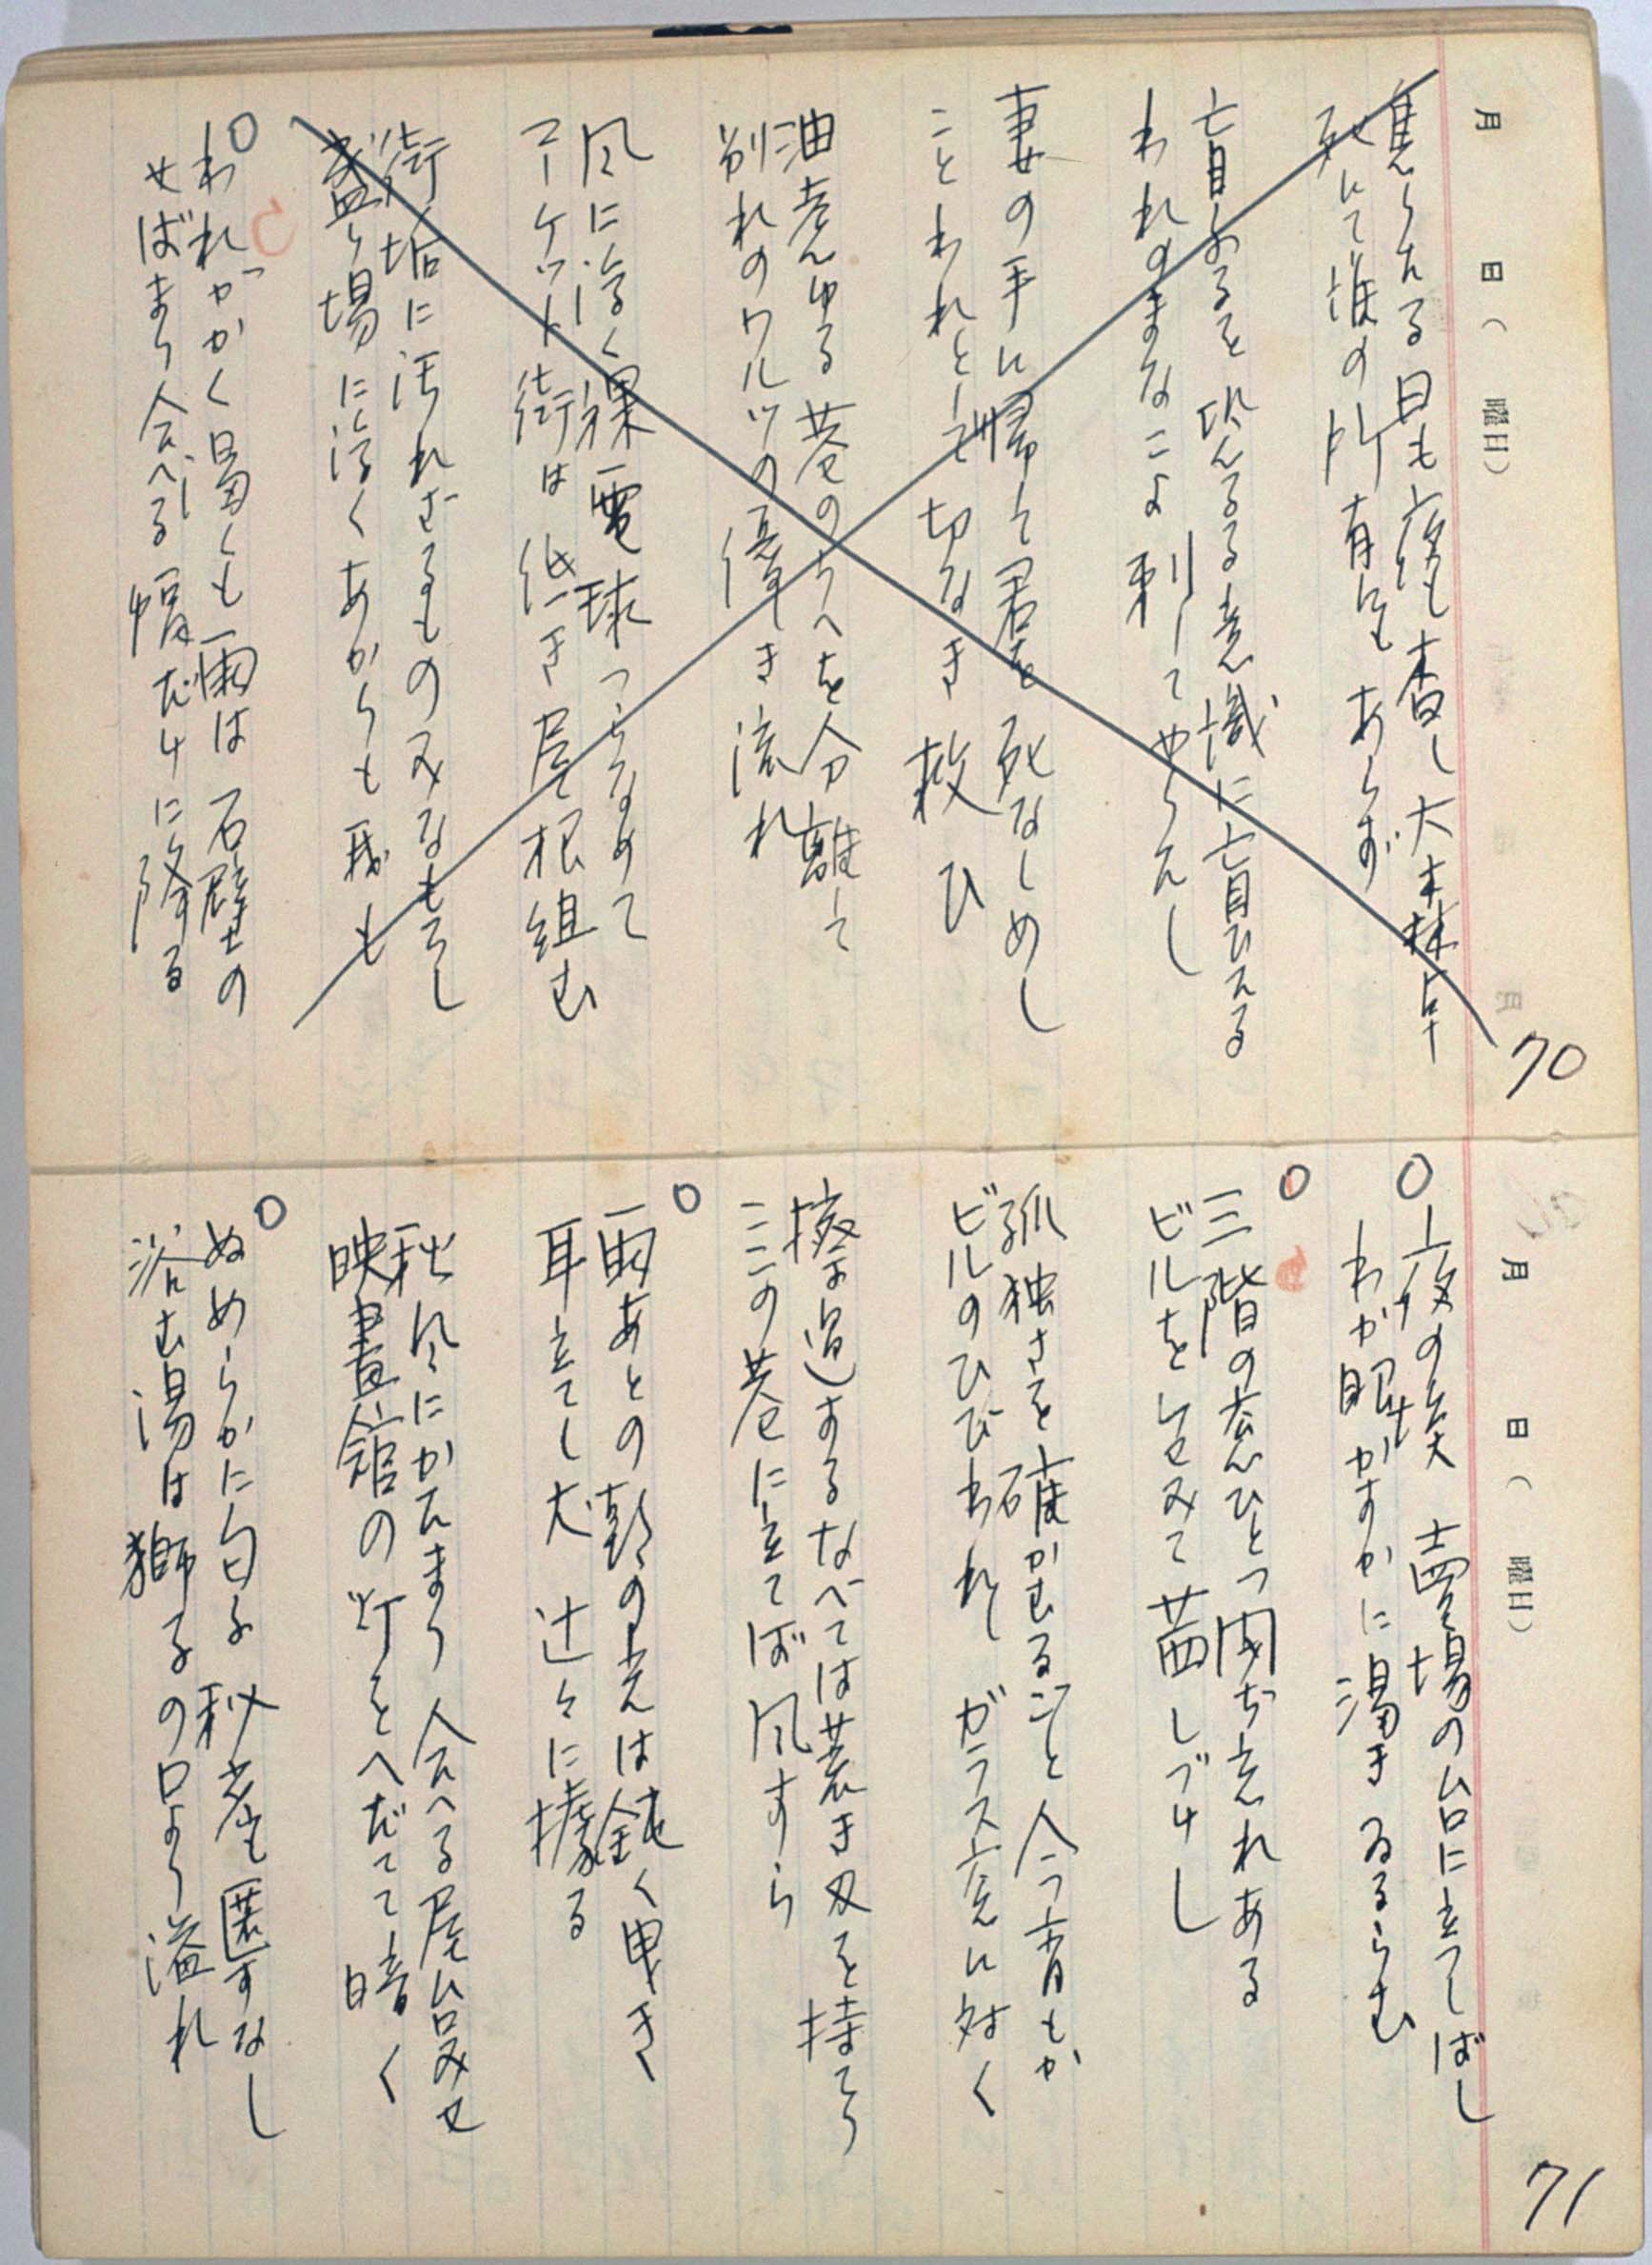 月 日（ 曜日）
70
焦らだる日も夜も杳し大森林
死にて誰の所有にもあらず
盲ひるを恐るる意識に盲ひゐる
われのまなこよ刺してやらんし
妻の手に帰して君を死なしめし
ことわれとして切なき救ひ
油煮ゆる巷のうへを分離して
別れのワルツの優しき流れ
風に浮く裸電球つらなめて
マーケット街は低き屋根組む
街垢に汚れざるものみなもろし
盛り場に浮くあかりも我も
○
われがかく渇くも雨は石壁の
せばまり合へる幅だけに降る
月 日（ 曜日）
71
○
夜の埃 売場の台に立つしばし
わが眼かすかに渇きゐるらむ
○
三階の窓ひとつ閉ぢ忘れある
ビルを包みて茜しづけし
孤独さを確かむるごと今宵もか
ビルのひびわれガラス窓に対く
擦過するなべては荒き刃を持てり
ここの巷に立てば風すら
○
雨あとの朝の光は鈍く曳き
耳立てし犬 辻々に撩る
秋風にかたまり合へる屋台みせ
映畫館の灯をへだてて暗く
○
ぬめらかに匂ふ秘密も匿すなし
浴む湯は獅子の口より溢れ